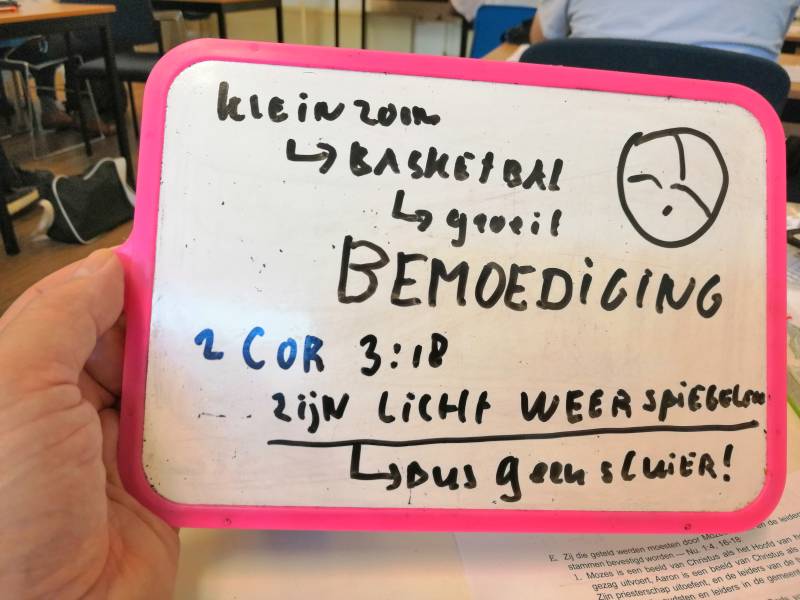 KLEINZOON
↳ BASKETBAL
↳ geveil
BEMOEDIGING
2 COR 3:18
ZIJN LICHT WEERSPIEGELEN
↳ DUS geen sluier!
E. Zij die geteld werden moesten door Moz en de leiders
stammen bevestigd worden — Nu. 1:4, 16-18
1. Mozes is een beeld van Christus als het Hoofd van he
gezag uitvoert, Aaron is een beeld van Christus als
Zijn priesterschap uitoefent, en de leiders van de
en leiders in de gemeen